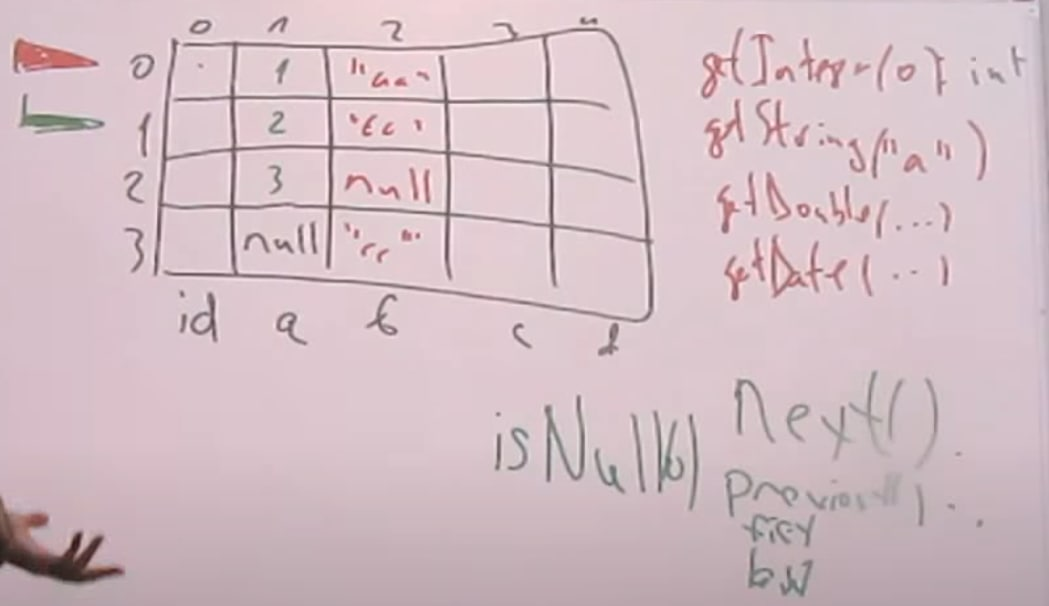 0 1 2 3 4
0 1 "aa"
1 2
2 3 null
3 null "cc"
id a b c d
getInteger(0): int
getString("a")
getDouble(...)
getDate(...)
isNull(6) next()
previous() ...